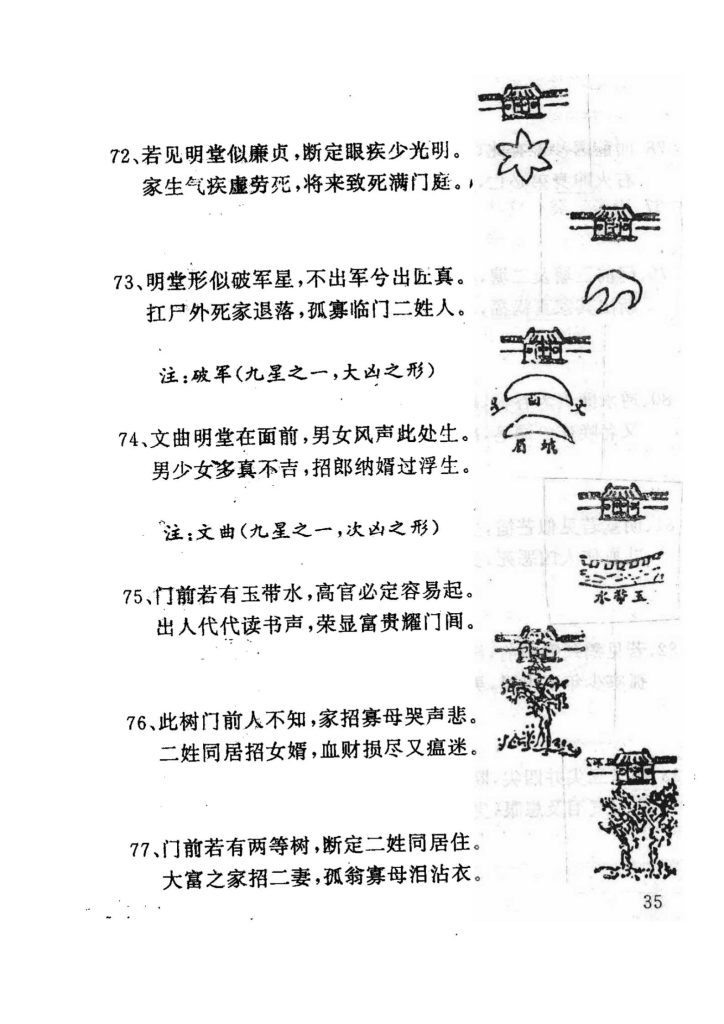 72、若见明堂似廉贞,断定眼疾少光明。
家生气疾虚劳死,将来致死满门庭。
73、明堂形似破军星,不出军兮出匠真。
扛尸外死家退落,孤寡临门二姓人。
注:破军(九星之一,大凶之形)
74、文曲明堂在面前,男女风声此处生。
男少女多真不吉,招郎纳婿过浮生。
注:文曲(九星之一,次凶之形)
眉 娥
75、门前若有玉带水,高官必定容易起。
出人代代读书声,荣显富贵耀门闾。
水带玉
76、此树门前人不知,家招寡母哭声悲。
二姓同居招女婿,血财损尽又瘟迷。
77、门前若有两等树,断定二姓同居住。
大富之家招二妻,孤翁寡母泪沾衣。
35